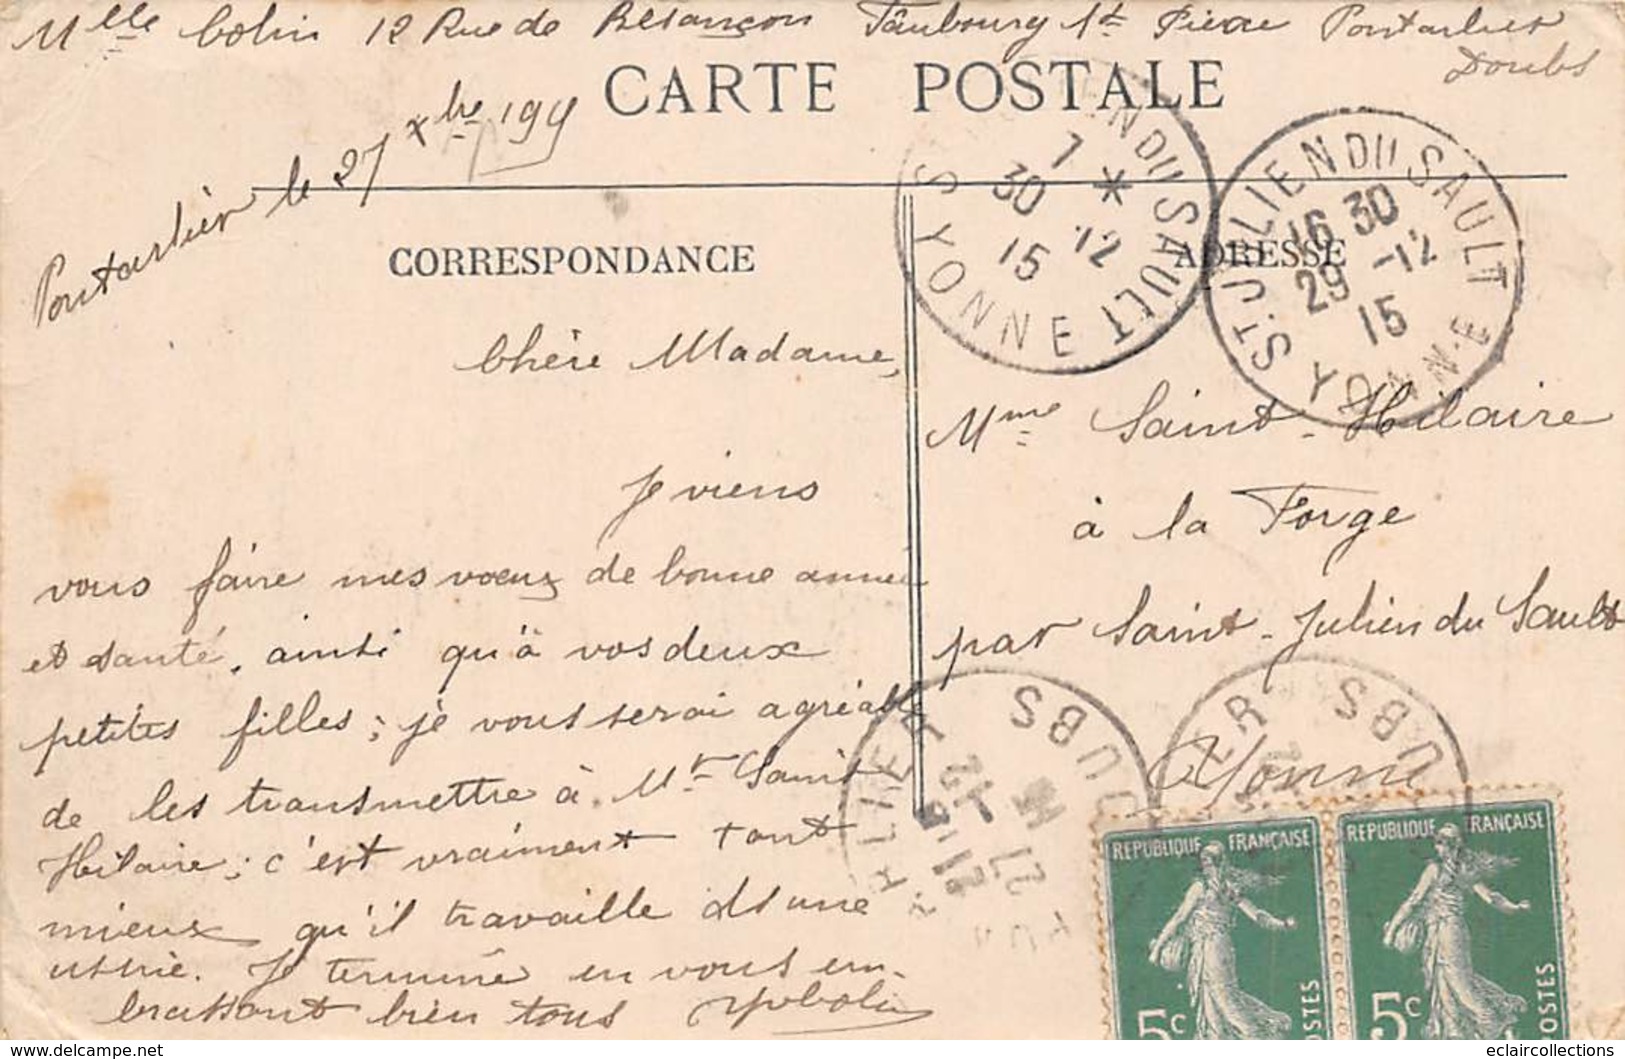 Mlle Colin 12 Rue de Besançon Faubourg St Pierre Pontarlier
Doubs
CARTE POSTALE
Pontarlier le 27 xbre 191
CORRESPONDANCE
ADRESSE
Chère Madame,
Je viens
vous faire mes voeux de bonne année
et santé, ainsi qu'à vos deux
petites filles; je vous serai agréable
de les transmettre à Mr Saint
Hilaire; c'est vraiment tant
mieux qu'il travaille ds une
usine. Je termine en vous em-
brassant bien tous
Mme Saint-Hilaire
à la Forge
par Saint-Julien du Sault
Yonne
N DU SAULT
S YONNE
7 *
30 12
15
ST. JULIEN DU SAULT
YONNE
16 30
29 -12
15
DOUBS
REPUBLIQUE FRANÇAISE
5c
POSTES
REPUBLIQUE FRANÇAISE
5c
POSTES
© delcampe.net
eclaircollections